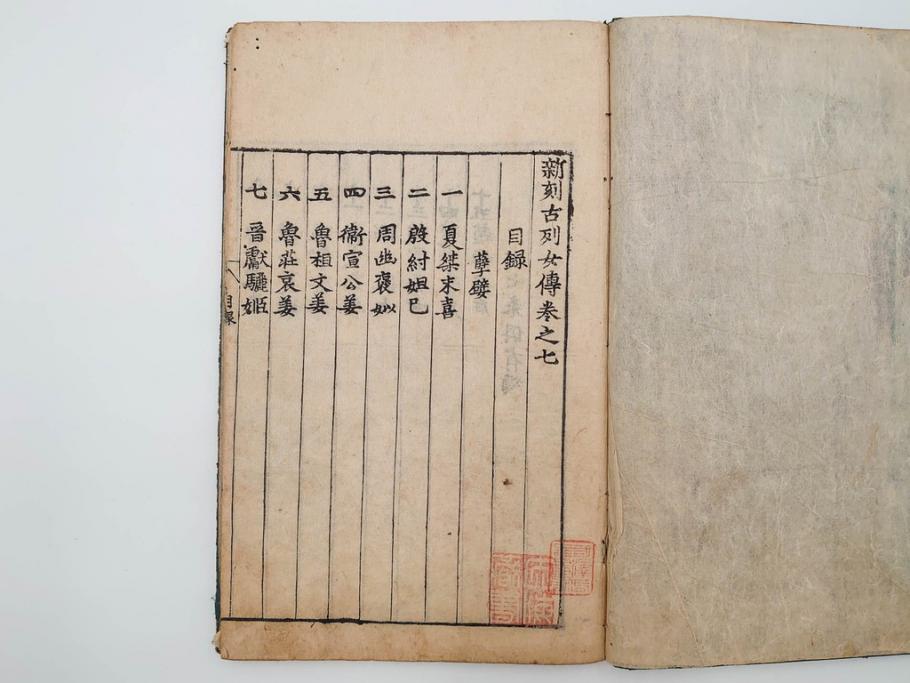 新刻古列女傳卷之七
目録
孽嬖
一 夏桀末喜
二 殷紂妲己
三 周幽褒姒
四 衞宣公姜
五 魯桓文姜
六 魯莊哀姜
七 晉獻驪姬
目録